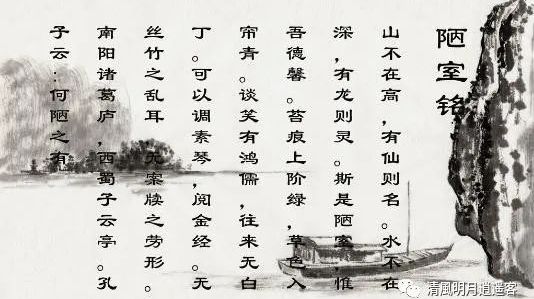 陋室铭
山不在高，有仙则名。水不在
深，有龙则灵。斯是陋室，惟
吾德馨。苔痕上阶绿，草色入
帘青。谈笑有鸿儒，往来无白
丁。可以调素琴，阅金经。无
丝竹之乱耳，无案牍之劳形。
南阳诸葛庐，西蜀子云亭。孔
子云：何陋之有
清風明月逍遥客